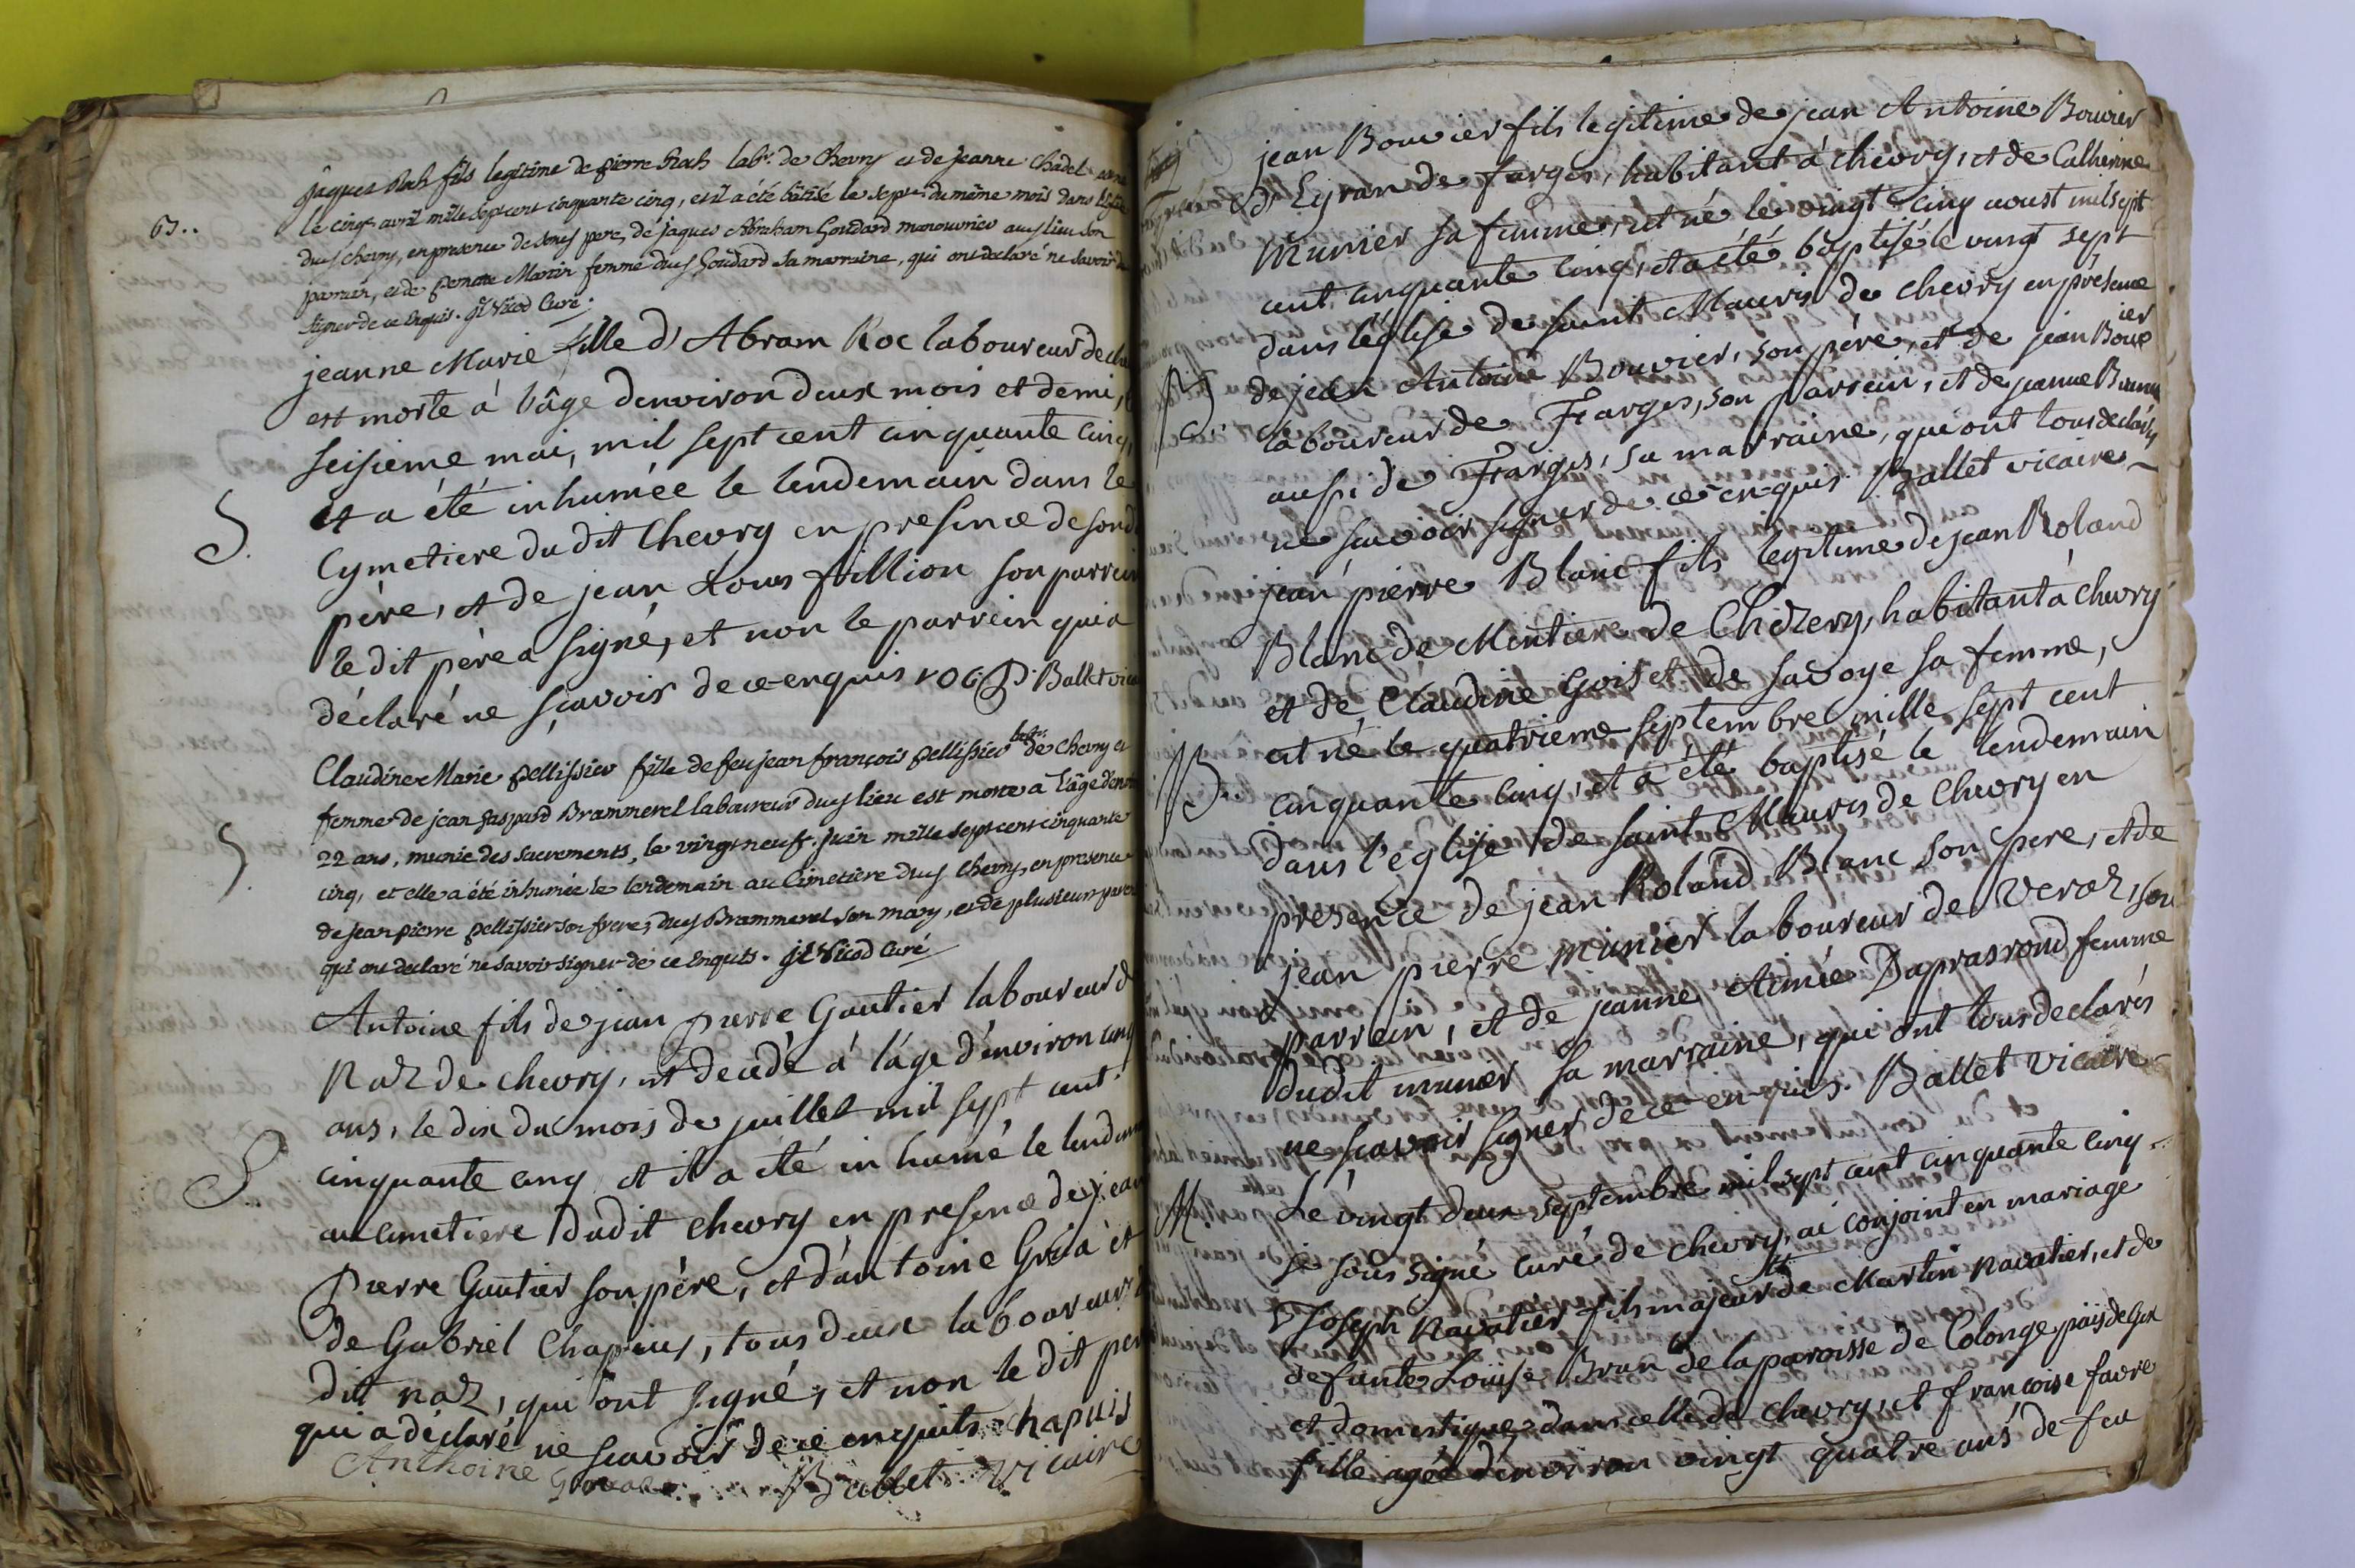 jaques Roch fils legitime de pierre Roch labr. de Chevry et de jeanne Chadel
le cinq avril mille sept cent cinquante cinq, et il a été bâtisé le sept du même mois dans l'église
B..
dud chevry, en presence de son pere, de jaques Abraham Goudard manouvrier aud lieu son
parrain, et de Pernette Marin femme dud Goudard sa marraine, qui ont declaré ne savoir
signer de ce enquis. Nicod Curé.
jeanne Marie fille d'Abram Roc laboureur de
est morte à l'âge denviron deux mois et demi,
seisieme mai, mil sept cent cinquante cinq,
S.
et a été inhumée le lendemain dans le
Cymetiere du dit Chevry en presence de son d
père, et de jean Louis fillion son parrein
le dit père a signé, et non le parrein qui a
déclaré ne sçavoir de ce enquis roc Ballet vic
labr.
Claudine Marie pellissier fille de feu jean françois pellissier de Chevry et
femme de jean gaspard Brammerel laboureur dud lieu est morte à l'âge d'env
22 ans, munie des sacrements, le vingt neuf juin mille sept cent cinquante
S.
cinq, et elle a été inhumée le lendemain au Cimetiere dud Chevry, en presence
de jean pierre pellissier son frere, dud Brammerel son mary, et de plusieurs paren
qui ont declaré ne savoir signer de ce Enquis. Nicod Curé
Antoine fils de jean pierre Gautier laboureur d
Naz de chevry, est decédé à l'âge d'environ cinq
ans, le dix du mois de juillet mil sept cent
S..
cinquante cinq et il a été inhumé le lendem
au cimetiere dudit chevry en presence de jean
Pierre Gautier son père, et d'antoine et
de Gabriel Chapuis, tous deux laboureurs
dit naz, qui ont signé, et non le dit per
qui a déclaré ne scavoir de ce enquis chapuis
Anthoine Ballet vicaire
jean Bouvier fils legitime de jean Antoine Bouvier
d'Eyran de farges, habitant à chevry, et de Catherine
Munier sa femme, est né le vingt cinq aoust mil sept
cent cinquante cinq, et a été baptisé le vingt sept
dans l'église de saint Mauris de chevry en presence
ier
B..
de jean Antoine Bouvier, son père, et de jean Bouv
laboureur de Farges, son parrein, et de jeanne
aussi de Farges, sa marraine, qui ont tous declarés
ne scavoir signer de ce enquis Ballet vicaire
jean pierre Blanc fils legitime de jean Roland
Blanc de Mentiere de Chezery, habitant à chevry
et de Claudine Goiset de savoye sa femme,
est né le quatrieme septembre mille sept cent
B..
cinquante cinq, et a été baptisé le lendemain
dans l'église de saint Mauris de Chevry en
presence de jean Roland Blanc son pere, et de
jean pierre munier laboureur de Veraz, son
parrein, et de jeanne Aimée Daprasrond femme
dudit munier sa marraine, qui ont tous declarés
ne scavoir signer de ce enquis. Ballet vicaire
M.
Le vingt deux septembre mil sept cent cinquante cinq
je sous signé curé de chevry, ai conjoint en mariage
Joseph navatier fils majeur de Martin navatier, et de
defunte Louise Brun de la paroisse de Colonge païs de Gex
et domestique dans celle de Chevry, et francoise favre
fille agée d'environ vingt quatre ans de feu